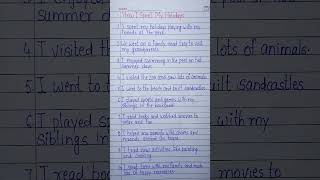 How I Spent My Holidays
1. I spent my holidays playing with my
friends at the park
2. We went on a family road trip to visit
my grandparents
3. I enjoyed swimming in the pool on hot
summer days
4. I visited the zoo and saw lots of animals.
5. I went to the beach and built sandcastles
6. I played sports and games with my
siblings in the backyard
7. I read books and watched movies to
relax and
8. I helped my parents with chores and
around the house
9. I tried new activities like painting
and cooking
10. I spent time with my family and made
lots of happy memories
summer days
4. I visited the
lots of animals.
5. I went to the
sandcastles
6. I played s
with my
siblings in
7. I read boo
movies to